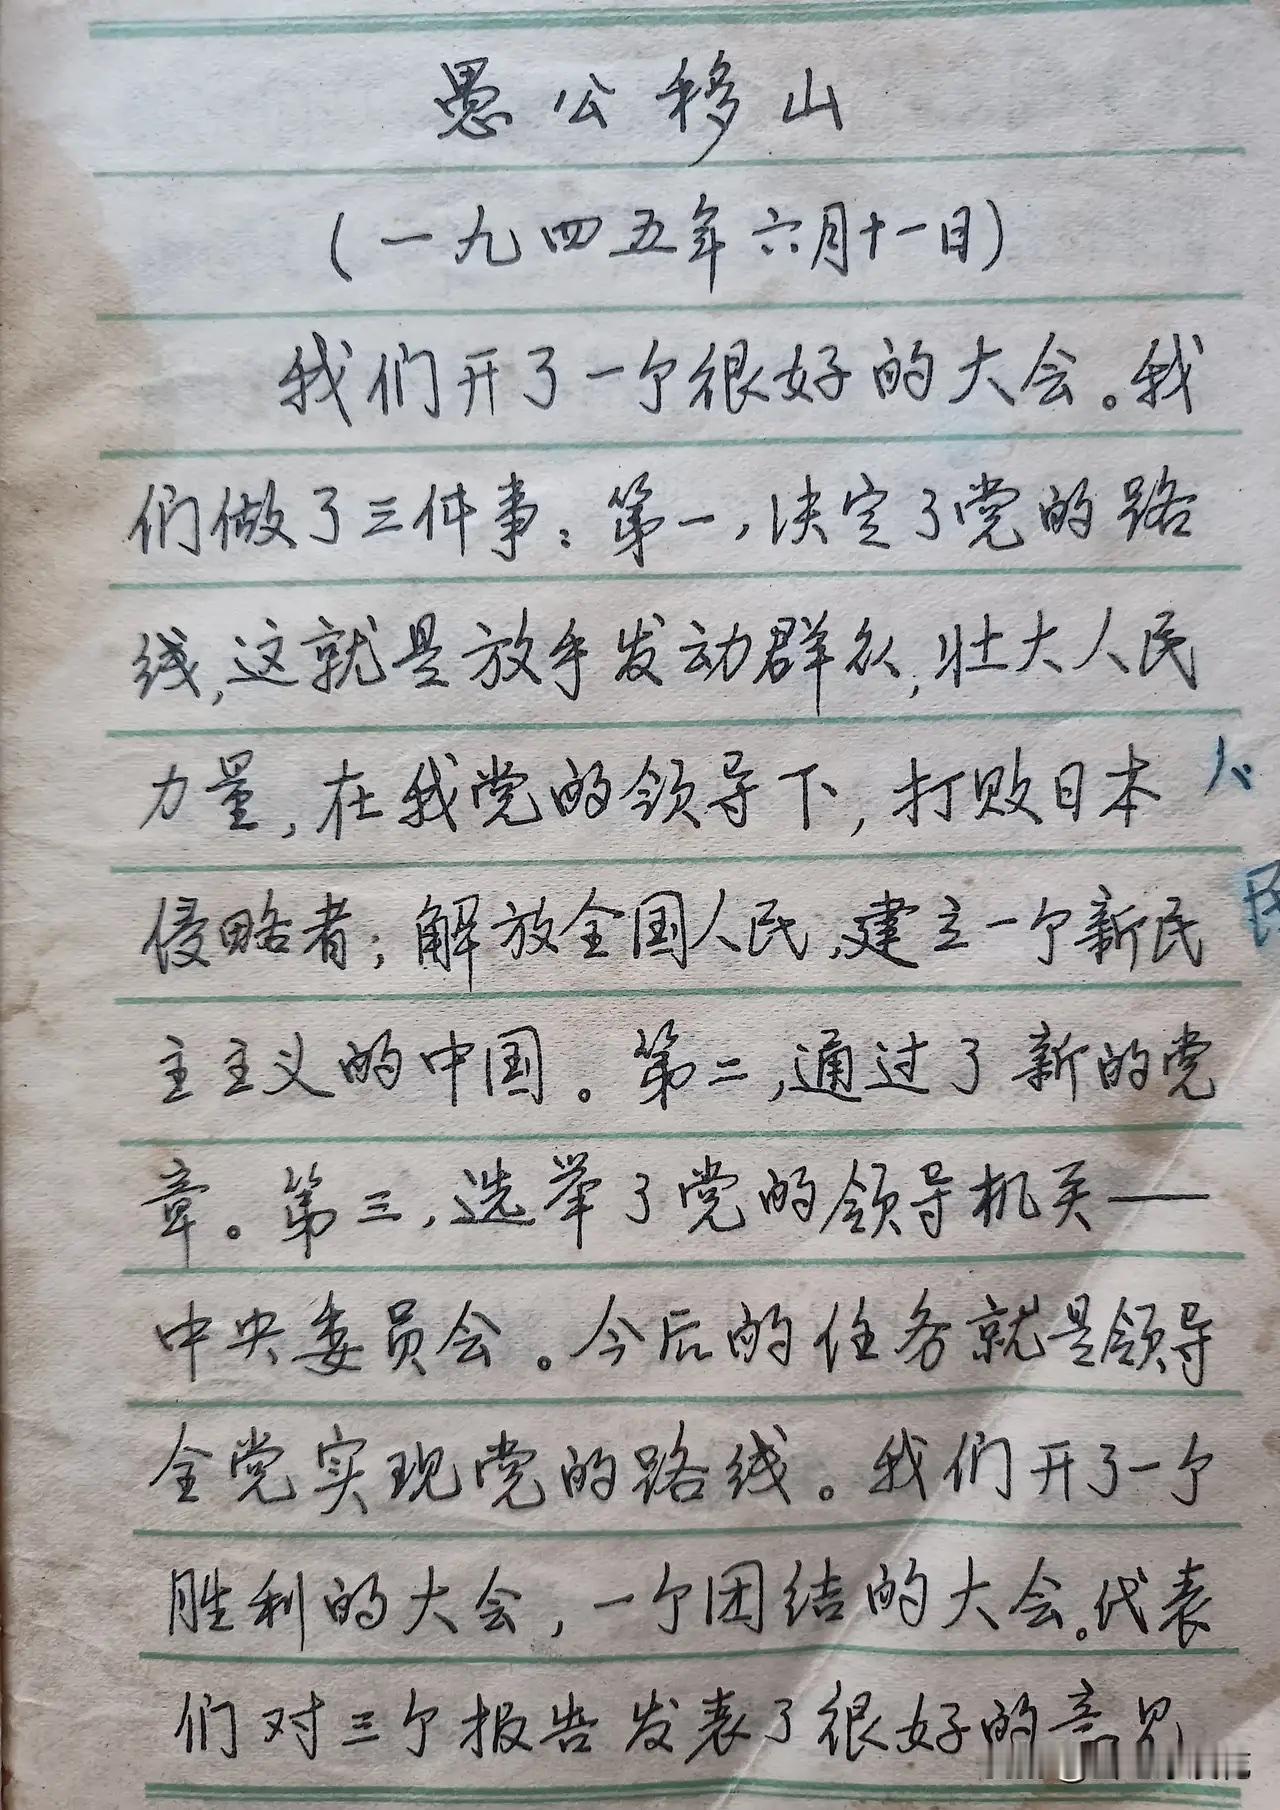 愚公移山
(一九四五年六月十一日)
我们开了一个很好的大会。我
们做了三件事：第一，决定了党的路
线，这就是放手发动群众，壮大人民
力量，在我党的领导下，打败日本
侵略者；解放全国人民，建立一个新民
主主义的中国。第二，通过了新的党
章。第三，选举了党的领导机关——
中央委员会。今后的任务就是领导
全党实现党的路线。我们开了一个
胜利的大会，一个团结的大会。代表
们对三个报告发表了很好的意见